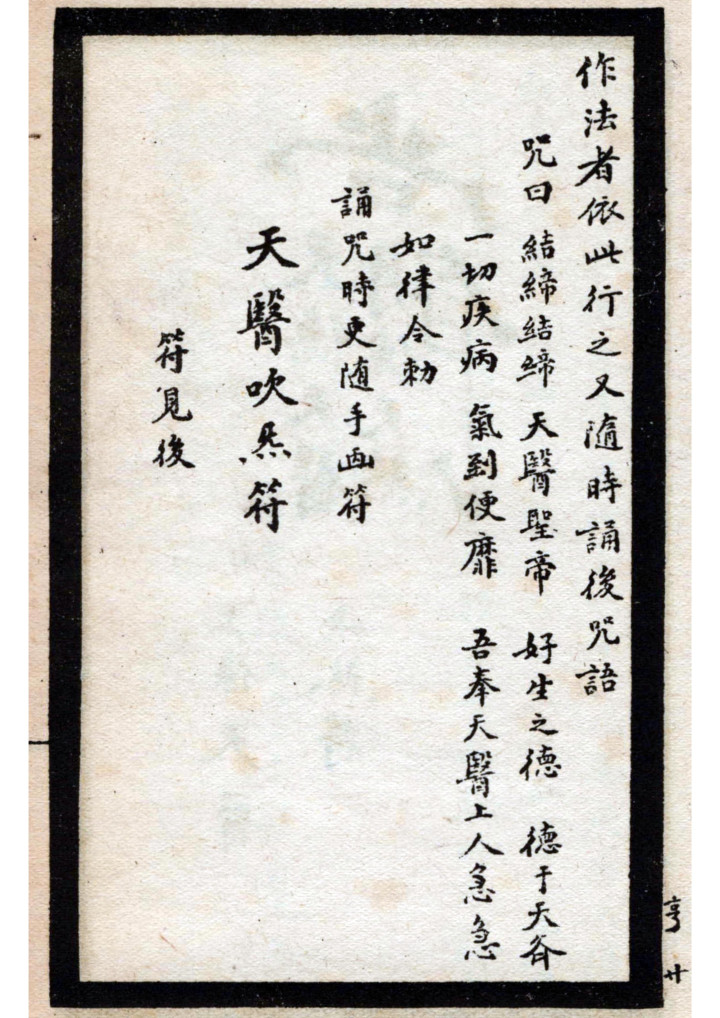 作法者依此行之又隨時誦後咒語
咒曰 結締結締 天醫聖帝 好生之德 德于天谷
一切疾病 氣到便靡 吾奉天醫上人急急
如律令勅
誦咒時更随手画符
天醫吹炁符
符見後
亨 廿